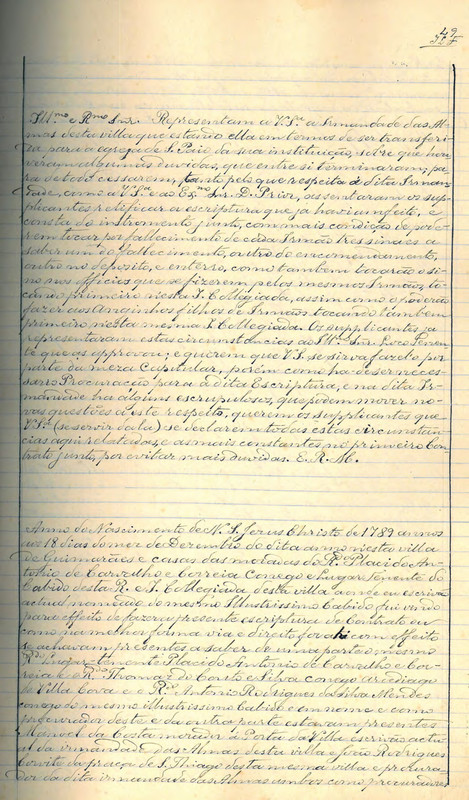 49
Ill.mo e Rmo Snr. Representam a V.Sra a Irmandade das Al-
mas desta villa que estando ella em termos de ser transferi-
da para a egreja de S. Paio da sua instituição, sobre que hou-
veram algumas duvidas, que entre si terminaram, pa-
ra de todo cessarem, tanto pelo que respeita á dita Irman-
dade, como a V.Sra e ao Exmo Snr. D. Prior, assentaram os sup-
plicantes retificar a escriptura que já haviam feito, e
consta do instromento junto, com mais condição de pode-
rem tocar por fallecimento de cada Irmão tres sinaes a
saber um do fallecimento, outro de encomendamento,
outro no deposito, e enterro, como tambem tocarão o si-
no nos officios que se fizerem pelos mesmos Irmãos, to-
cando primeiro nesta I. Collegiada, assim como o poderão
fazer aos Anginhos filhos de Irmãos, tocando tambem
primeiro nesta mesma I. Collegiada. Os supplicantes, a
representaram estas circumstancias ao Illmo Snr. Loco Tenen-
te que as approvou; e querem que V.S. se sirva fazel-o por
parte da meza Capitular, porem como ha-de ser neces-
sario Procuração para a dita Escriptura, e na dita Ir-
mandade ha alguns escrupulosos, que podem mover no-
vas questões a este respeito, querem os supplicantes que
V.Sra (se servir dal-a) se declarem todas estas circumstan-
cias aqui relatadas, e as mais constantes no primeiro Con-
trato junto, por evitar mais duvidas. E. R. M.
Anno do Nascimento de N. S. Jesus Christo de 1789 annos
aos 18 dias do mez de Dezembro do dito anno nesta villa
de Guimarães e casas das moradas do R.do Placido An-
tonio de Carvalho e Correia Conego e lugar Tenente do
Cabido desta R. e I. Collegiada desta villa aonde eu escrivão
actual nomeado do mesmo Illustrissimo Cabido fui vindo
para effeito de fazer a presente escriptura de Contrato ou
como na melhor forma via e direito for e hi com effeito
se achavam presentes a saber de uma parte o mesmo
R.do lugar tenente Placido Antonio de Carvalho e Cor-
reia e o R.do Thomaz do Couto e Silva conego arcediago
de Villa Cova e o R.do Antonio Rodrigues da Silva Mendes
conego do mesmo Illustrissimo Cabido e em nome e como
procurador deste e da outra parte estavam presentes
Manoel da Costa morador á Porta da Villa escrivão actu-
al da irmandade das Almas desta villa e João Rodrigues
da praça de S. Thiago desta mesma villa e procura-
dor da dita irmandade das Almas ambos como procuradores